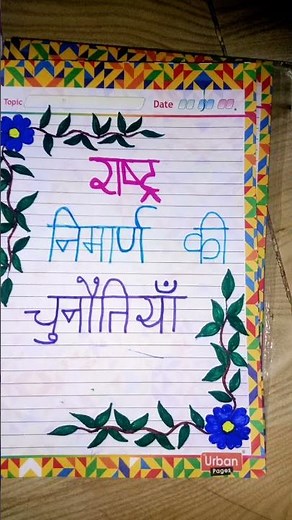 Topic
Date
राष्ट्र
निमार्ण की
चुनौतियाँ
Urban
Pages